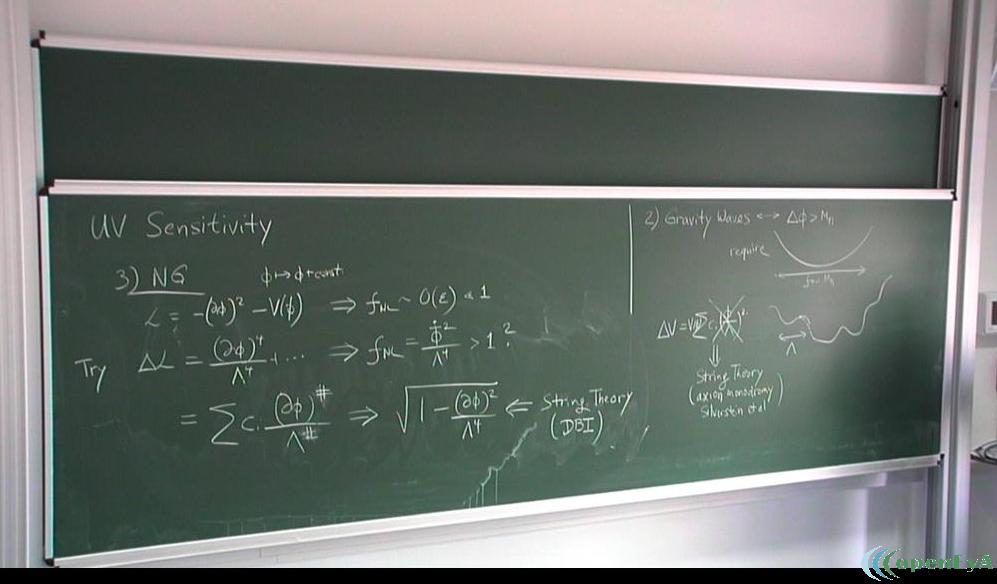 UV Sensitivity
3) NG   ϕ ↦ ϕ + const
ℒ = -(∂ϕ)² - V(ϕ)  ⇒ f_NL ~ O(ε) < 1
Try Δℒ = (∂ϕ)⁴/Λ⁴ + ... ⇒ f_NL = ϕ̇²/Λ⁴ > 1 ?
= Σ cᵢ (∂ϕ)^#/Λ^# ⇒ √(1 - (∂ϕ)²/Λ⁴) ⇐ String Theory
(DBI)
2) Gravity Waves ↔ Δϕ > M_pl
require
few M_pl
ΔV =
Λ
⇓
String Theory
(axion monodromy
Silverstein et al)
openEyA